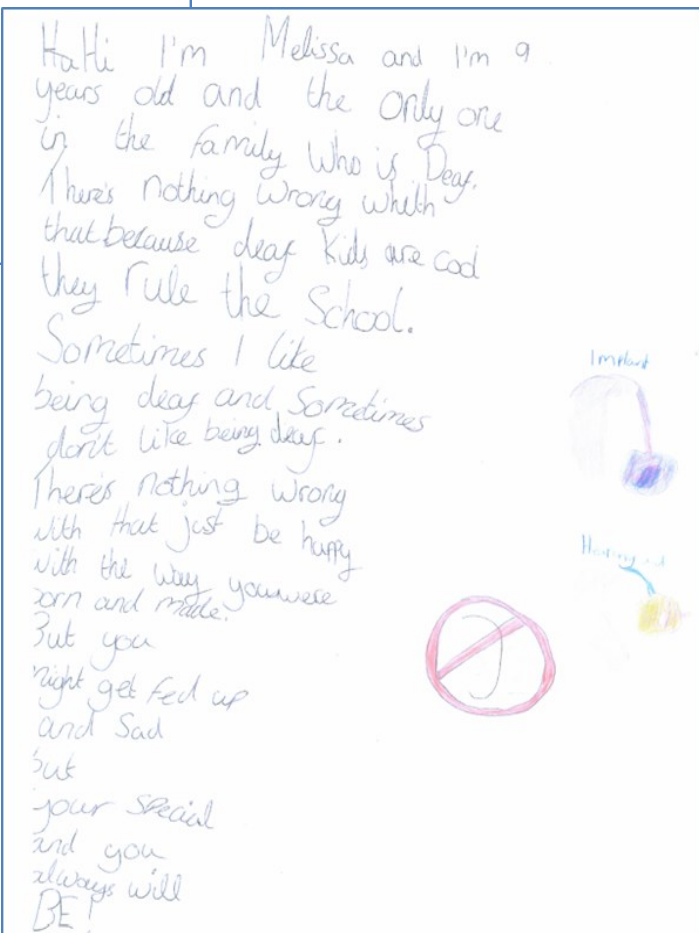 HaHi I'm Melissa and I'm 9
years old and the only one
in the family Who is Deaf.
There's nothing wrong whith
that because deaf kids are cool
they rule the School.
Sometimes I like
being deaf and Sometimes
don't like being deaf.
There's nothing wrong
with that just be happy
with the way you were
born and made.
But you
might get fed up
and Sad
but
your special
and you
always will
BE!
Implant
Hearing aid